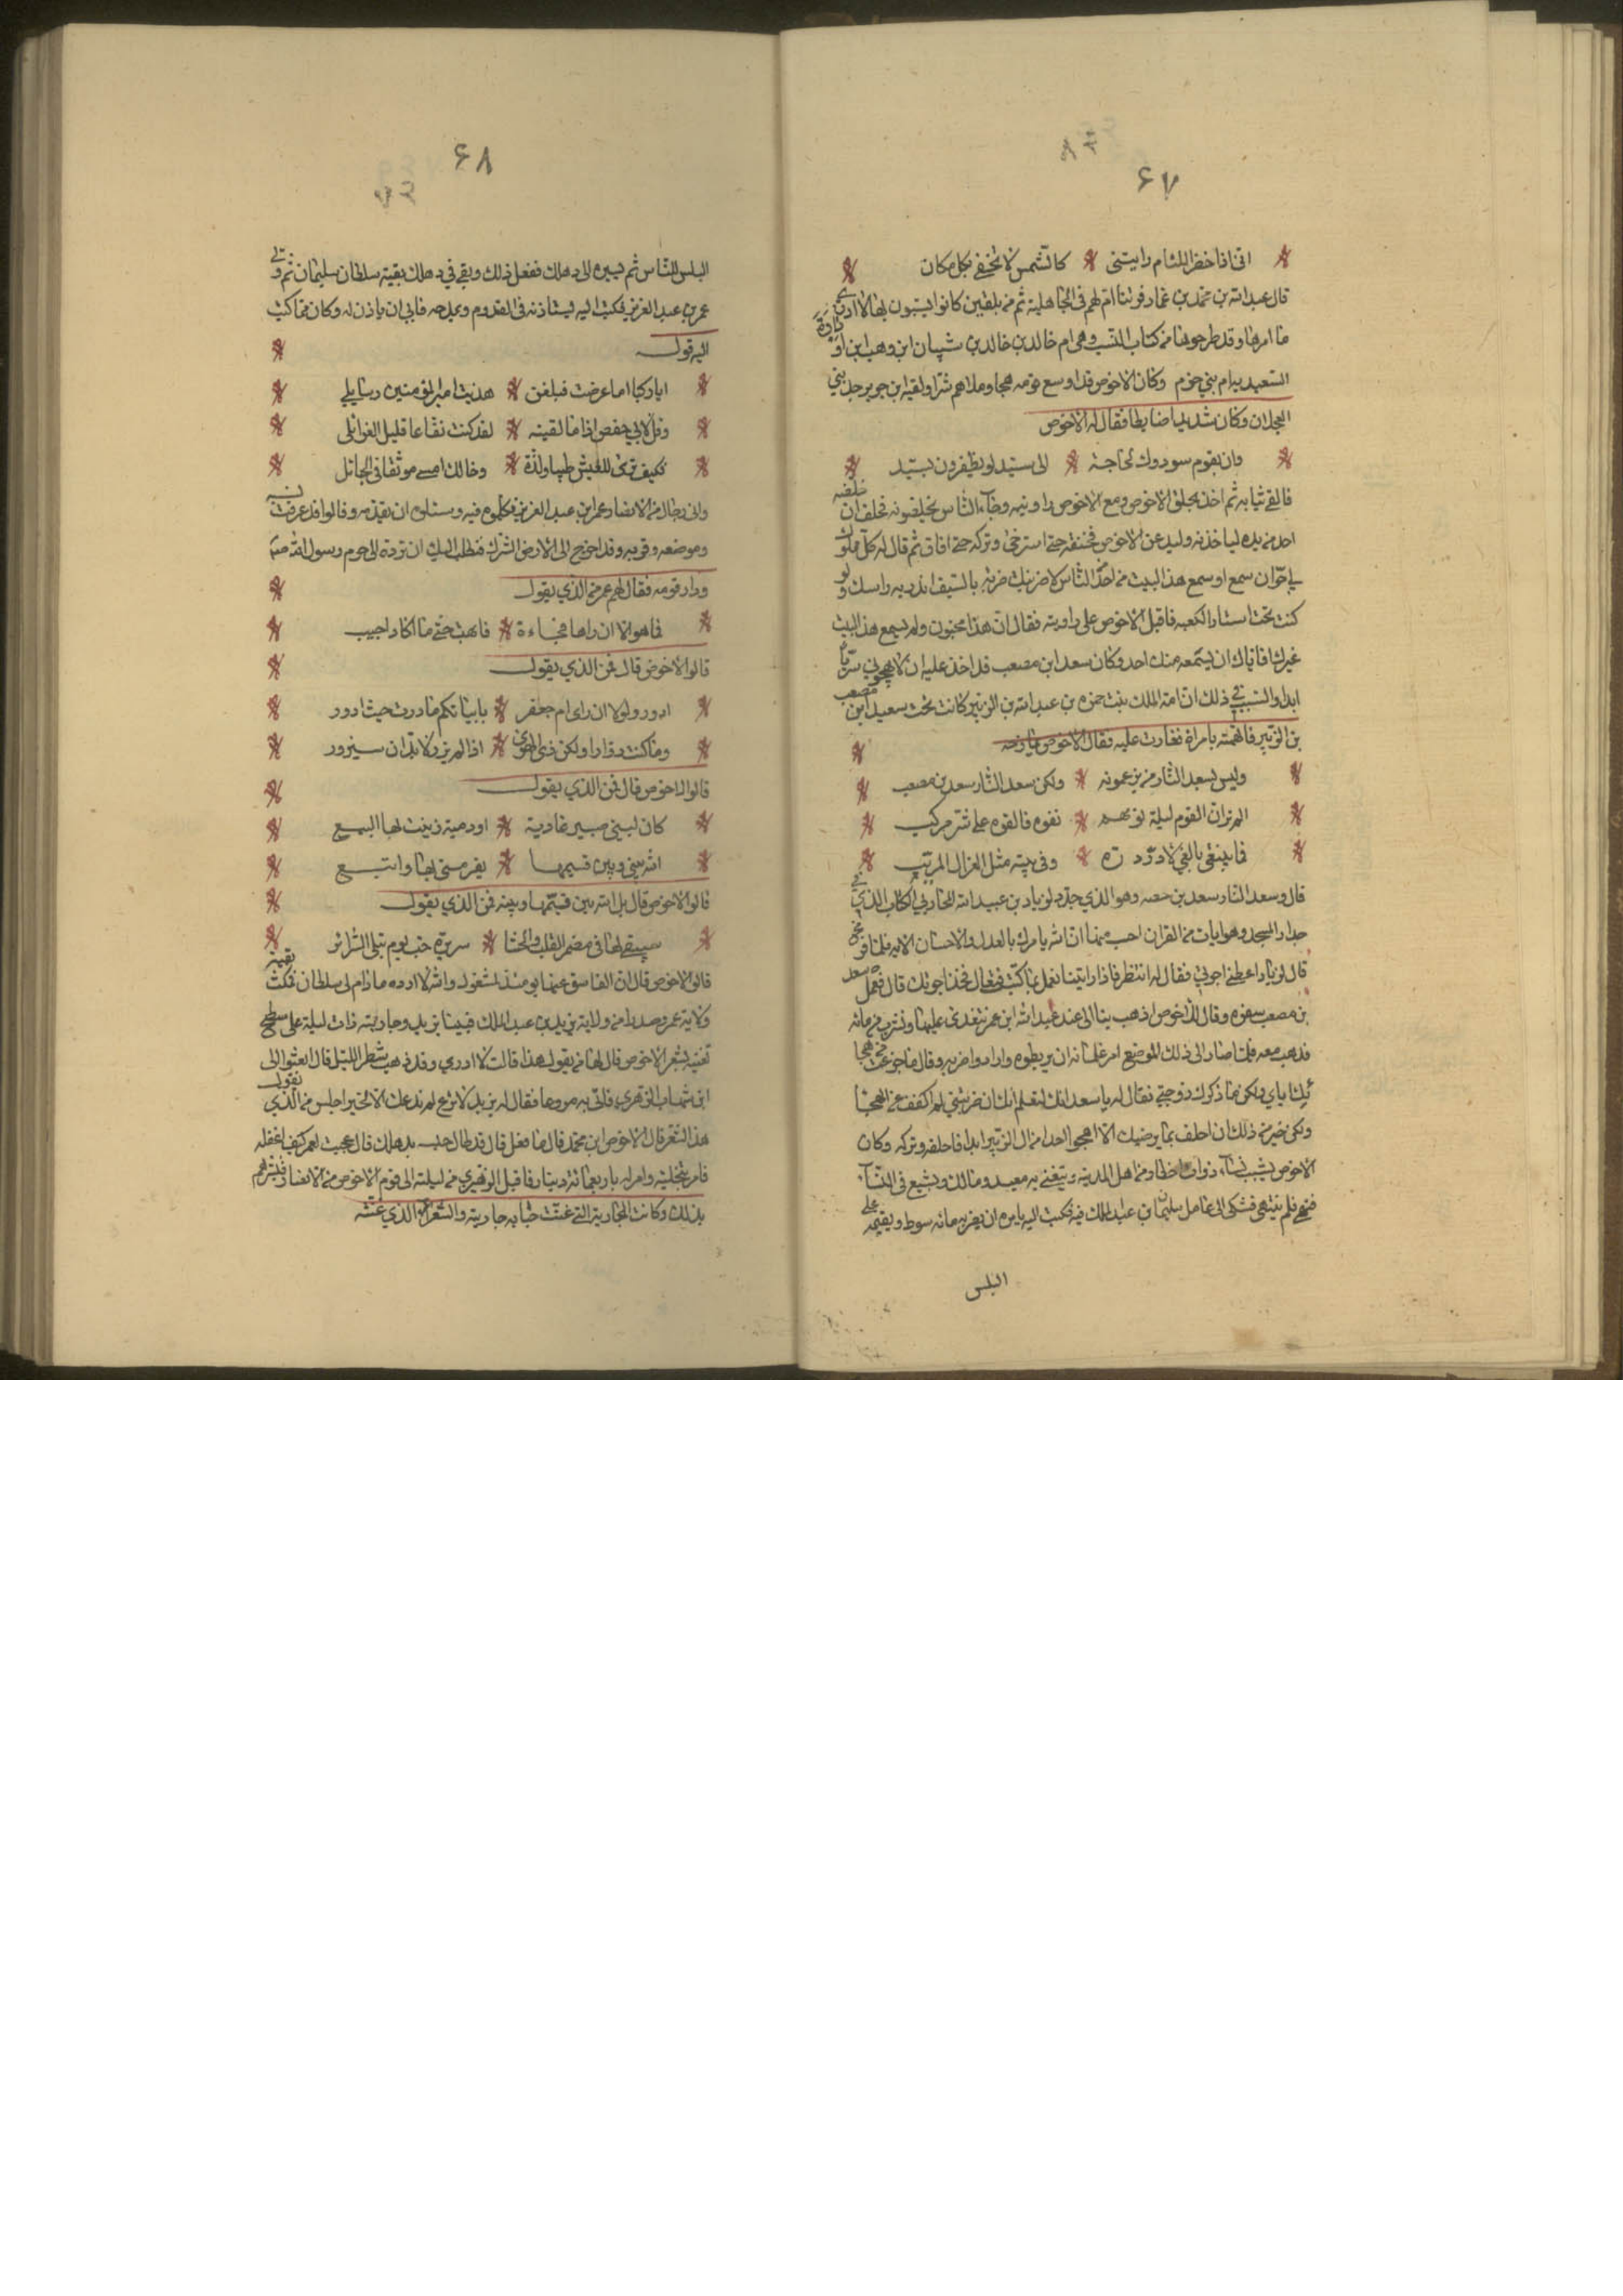 ۶۷
اني اذا خفي اللئام رايتني كالشمس لا تخفى بكل مكان
قال عبد الله بن محمد بن عمار فرتنا ام لهم في الجاهلية ثم من بلقين كانوا يسبون بها لا ادري
ما امرها وقد طرحوها من كتاب النسب وهي ام خالد بن خالد بن سنان ابن وهب ابن
السعيد بيام بني حزم وكان الاحوص قد اوسع قومه هجا وملاهم شرا ولقيه ابن جرير رجل بني
العجلان وكان شديدا ضابطا فقال له الاحوص
وان بقوم سودوك لحاجة الى سيد لو يظفرون بسيد
فالقى ثيابه ثم اخذ بحلق الاحوص ومع الاحوص راويته وجاء الناس ليخلصونه فحلف ان خلصه
احد من يده لياخذنه وليدعن الاحوص فخنقه حتى استرخى وتركه حتى افاق ثم قال له كل مملوك
لي حر ان سمع او سمع هذا البيت من احد الناس لاضربنك ضربة بالسيف اندر به راسك ولو
كنت تحت استار الكعبه فاقبل الاحوص على راويته فقال ان هذا مجنون ولم يسمع هذا البيت
غيرك فاياك ان يسمعه منك احد وكان سعد ابن مصعب قد اخذ عليه ان لا يهجوني
ابدا والسبب في ذلك ان امة الملك بنت حمزه بن عبد الله بن الزبير كانت تحت سعيد ابن مصعب
بن الزبير فاتهمته بامراة فغارت عليه فقال الاحوص يمازحه
وليس لسعد النار من يزعمونه ولكن سعد النار سعد بن مصعب
الم تر ان القوم ليلة نوحهم نفوه فالفوه على شر مركب
فما يبتغي بالغي لا در دره وفي بيته مثل الغزال المربب
قال وسعد النار سعد بن حصنه وهو الذي جدد لزياد بن عبيد الله الحارثي الكتاب الذي في
جدار المسجد وهو ايات من القران احسب منها ان الله يامرك بالعدل والاحسان الايه فلما فرغ
قال لزياد اعطني اجرتي فقال له انتظر فاذا رايتنا نعمل بما كتبت فتعال فخذ اجرتك قال فعمل سعد
بن مصعب سفره وقال للاحوص اذهب بنا الى عند عبد الله ابن عمر نتغدى عليها ونشرب من مائه
فذهب معه فلما صار الى ذلك الموضع امر غلمانه ان يربطوه واراد واضربه وقال ما جزعت من هجا
ئك اياي ولكن ما ذكرك زوجتي فقال له يا سعد انك لتعلم انك ان ضربتني لم اكفف عن الهجا
ولكن خير من ذلك ان احلف بما يرضيك الا اهجو احدا من ال الزبير ابدا فاحلفه وتركه وكان
الاحوص يشبب بنساء ذوات اخطار من اهل المدينه ويتغنى به معبد ومالك ويشيع في النساء
فنهي فلم ينتهي فشكى الى عامل سليمان بن عبد الملك فيه فكتب اليه يامره ان يضربه مائه سوط ويقيمه على
البلس
۶۸
البلس للناس ثم يسيره الى دهلك ففعل ذلك وبقي في دهلك بقية سلطان سليمان ثم ولي
عمر بن عبد العزيز فكتب اليه يستاذنه في القدوم ويمدحه فابى ان ياذن له وكان مما كتب
اليه قوله
ايا راكبا اما عرضت فبلغن هديت امير المؤمنين رسايلي
وقل لابي حفص اذا ما لقيته لقد كنت نفاعا قليل الغوائل
فكيف ترى للعيش طيبا ولذة وخالك امسى موثقا في الحبائل
واتى رجال من الانصار عمر ابن عبد العزيز فكلموه فيه وسئلوه ان يقدمه وقالوا قد عرفت نسبه
وموضعه وقربه وقد اخرج الى الارض الشرك فنطلب اليك ان ترده الى حرم رسول الله
ودار قومه فقال لهم عمر من الذي يقول
فما هو الا ان راها فجاءة فابهت حتى ما اكاد اجيب
قالوا الاحوص قال فمن الذي يقول
ادور ولولا ان ارى ام جعفر بابياتكم ما درت حيث ادور
وما كنت دوارا ولكن ذي الهوى اذا لم يزر لا بد ان سيزور
قالوا الاحوص قال فمن الذي يقول
كان لبني صبير غادية او دمية زينت بها البيع
الله بيني وبين قيمها يفر مني بها واتبع
قالوا الاحوص قال بل الله بين قيمها وبينه فمن الذي يقول
سيبقى لها في مضمر القلب والحشا سريرة حب يوم تبلى السرائر
قالوا الاحوص قال ان الفاسق عنها يومئذ لمشغول والله لا ارده ما دام لي سلطان فمكث بقية
ولاية عمر وصدرا من ولاية يزيد بن عبد الملك فبينا يزيد وجاريته ذات ليلة على سطح
تغنيه بشعر الاحوص قال لها من يقول هذا قالت لا ادري وقد ذهب شطر الليل قال ابعثوا الى
ابن شهاب الزهري فاتي به مروعا فقال له يزيد لا ترع لم ندعك الا لخير اجلس من الذي يقول
هذا الشعر قال الاحوص ابن محمد قال ما فعل قال قد طال حبسه بدهلك قال عجبت لعمر كيف اغفله
فامر بتخلية وامر له باربعمائة دينار فاقبل الزهري من ليلته الى قوم الاحوص من الانصار فبشرهم
بذلك وكانت الجارية التي غنت حبابه جاريته والشعر الذي غنته